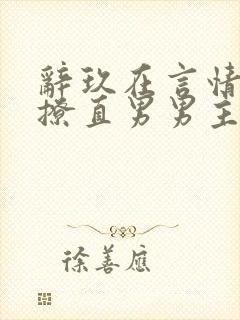 辭玖在言情
撩直男男主
徐善應